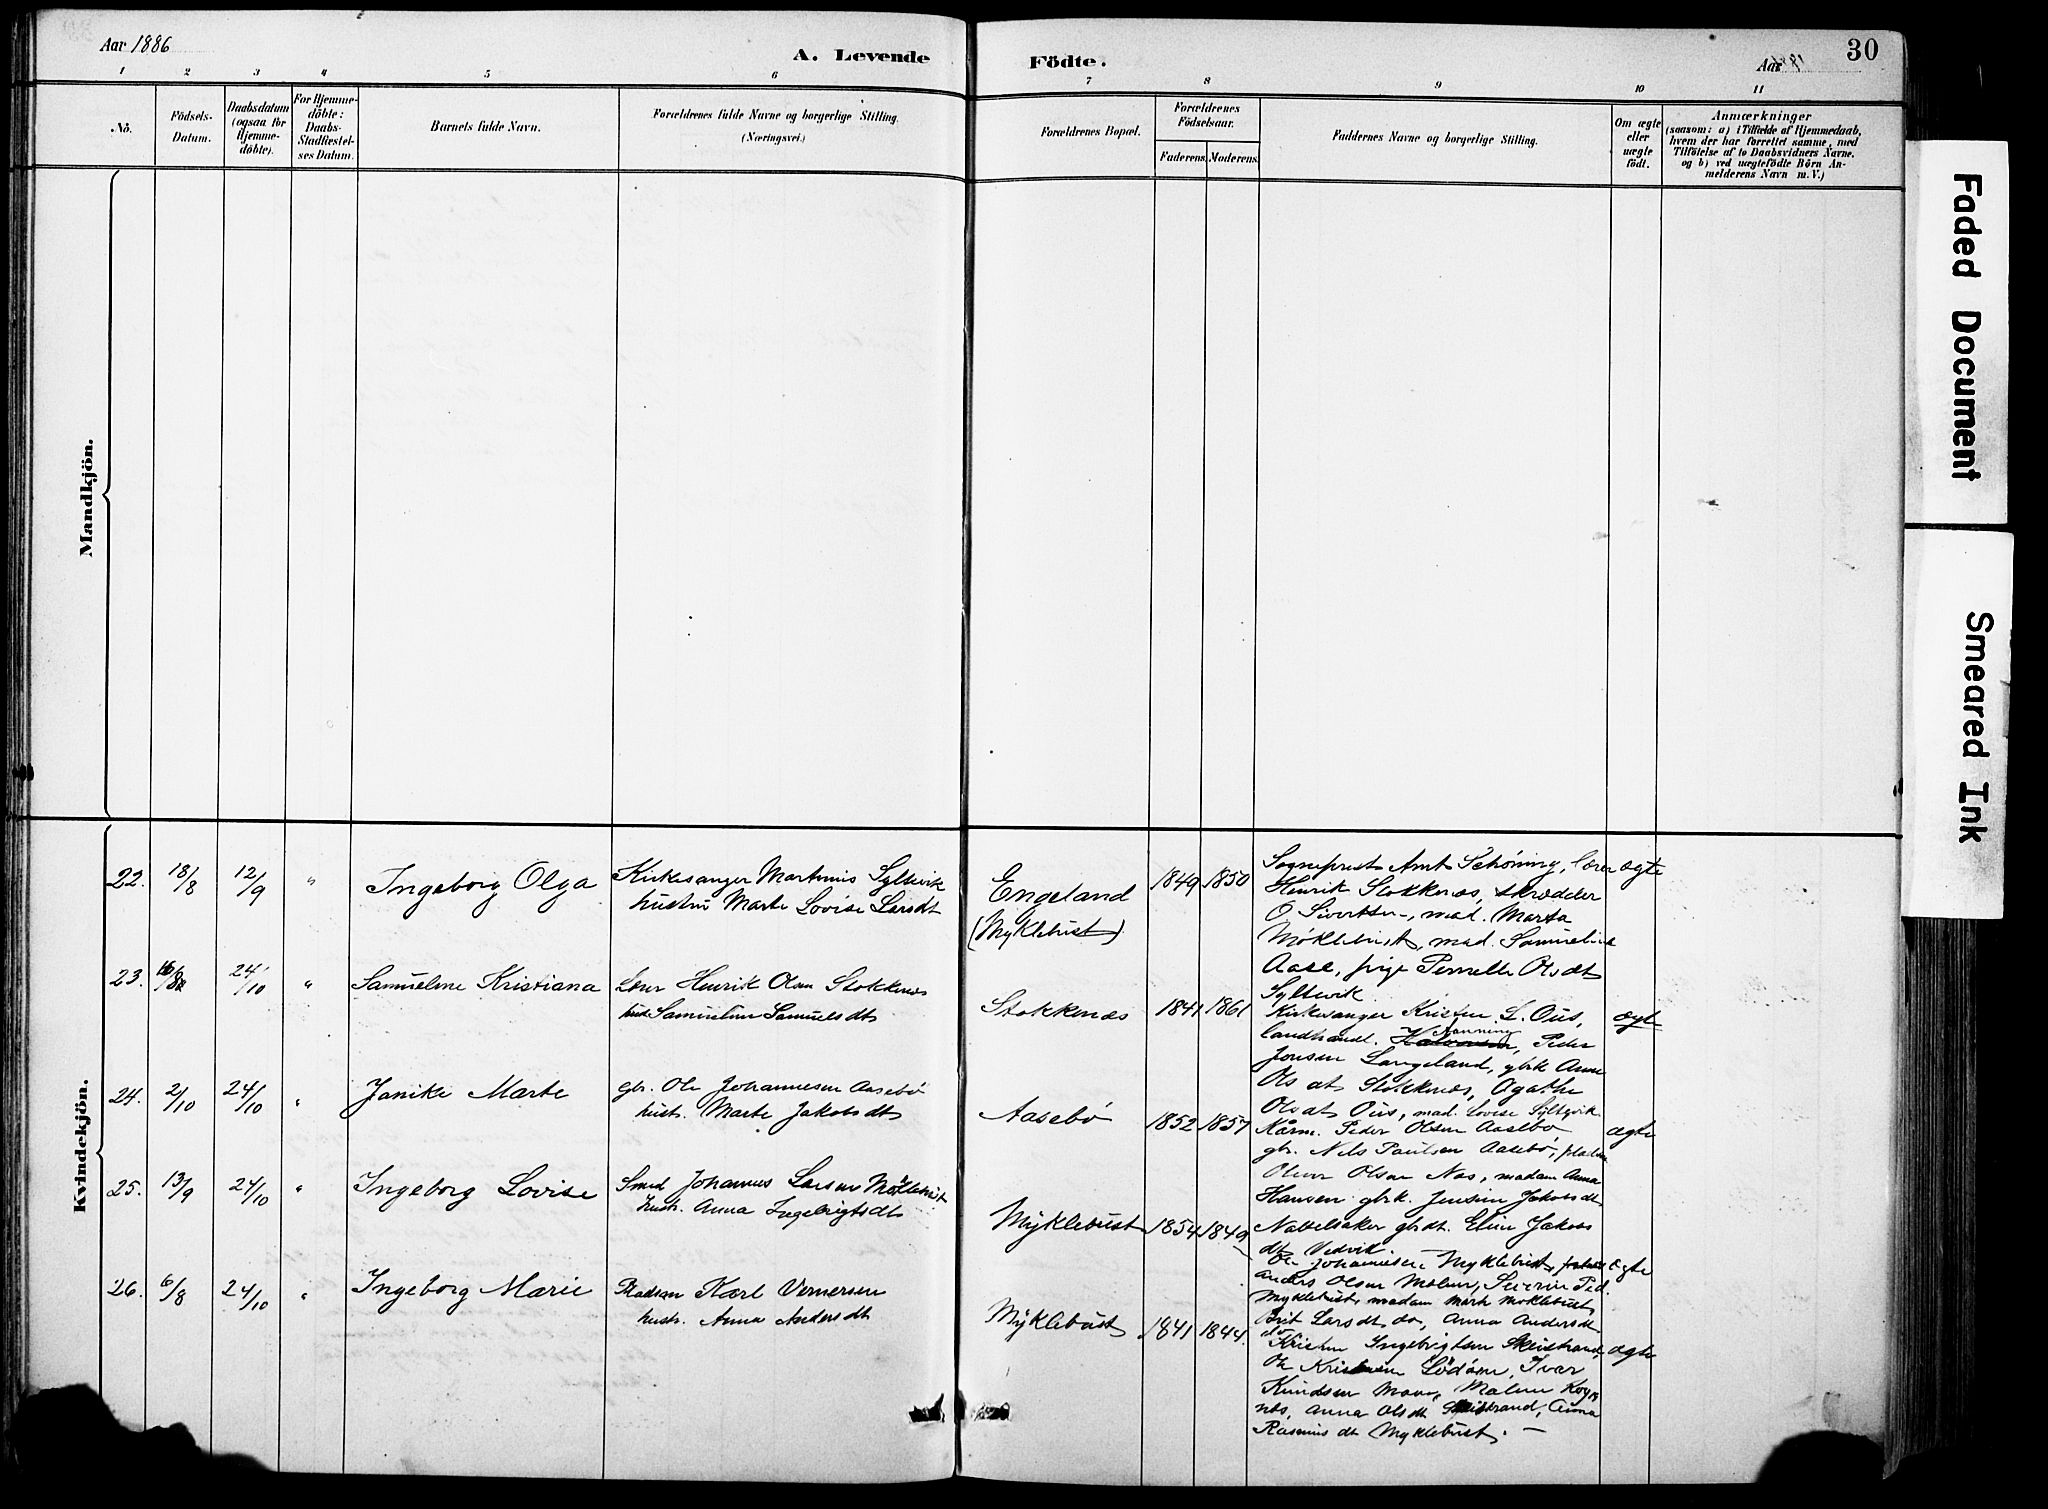 Aar 1886
A. Levende Födte.
Aar
30
1 2 3 4 5 6 7 8 9 10 11
No.
Födsels-
Datum.
Daabsdatum
(ogsaa for
Hjemme-
döbte).
For Hjemme-
döbte:
Daabs-
Stadfæstel-
ses Datum.
Barnets fulde Navn.
Forældrenes fulde Navne og borgerlige Stilling.
(Næringsvei.)
Forældrenes Bopæl.
Forældrenes
Födselsaar.
Faderens. Moderens.
Faddernes Navne og borgerlige Stilling.
Om ægte
eller
uægte
födt.
Anmærkninger
(saasom: a) i Tilfælde af Hjemmedaab,
hvem der har forrettet samme, med
Tilföielse af to Daabsvidners Navne.
og b) ved uægtefödte Börn An-
melderens Navn m. V.)
Mandkjön.
Kvindekjön.
22. 18/8 12/9 " Ingeborg Olga
Kirkesanger Martinus Syltevik
hustru Marte Lovise Larsdt
Engeland
(Myklebust)
1849 1850
Sogneprest Arnt Schöning, lærer
Henrik Stokkenæs, skrædder
O. Sivertsen, mad. Marta
Möklebust, mad. Samueline
Aase, pige Pernelle Olsdt
Syltevik.
ægte
23. 24/10 " Samueline Kristiana
Lærer Henrik Olsen Stokkenæs
hust. Samueline Samuelsdt
Stokkenæs
1841 1861
Kirkesanger Kristen L. Ous,
landhandl. Nanning, Peder
Jonsen Langeland, gbrk Anne
Olsdt Stokkenæs, Agathe
Olsdt Ous, mad. Lovise Syltevik
ægte
24. 2/10 24/10 " Janike Marte
gbr. Ole Johannesen Aasebö
hust. Marte Jakobsdt
Aasebö
1852 1857
Peder Olsen Aasebö
gbr. Nils Paulsen Aasebö,
Oliver Olsen Nos, madam Anna
Hansen gbrk. Jensine Jakobsdt
Nabelsaker gbdt. Eline Jakobs
dt Vedvik.
ægte
25. 13/9 24/10 " Ingeborg Lovise
Smed Johannes Larsen Möklebust
hustr. Anna Ingebrigtsdt
Myklebust
1854 1849
Ole Johannesen Myklebust,
Anders Olsen Molun, Severin Ped.
Myklebust, madam Marte Moklebust
Brit Larsdt do, Anna Andersdt
do
ægte
26. 6/8 24/10 " Ingeborg Marie
Pladsm Karl Vernersen
hustr. Anna Andersdt
Myklebust
1841 1844.
Kristen Ingebrigtsen
Ole Kristensen Ivar
Knudsen Malene
Anna Olsdt Anna
Rasmusdt Myklebust. —
ægte
Faded Document
Smeared Ink